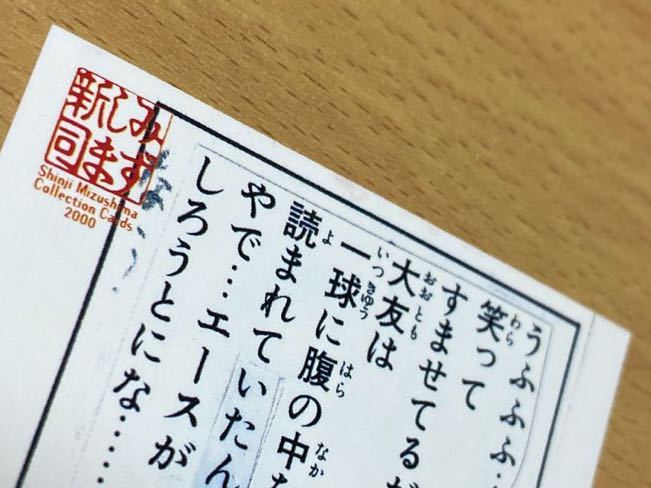 みずしま
新司
Shinji Mizushima
Collection Cards
2000
うふふふ…
笑って
わら
すませてるだ
大友は
おおとも
一球に腹の中を
いっきゅう はら なか
読まれていたん
よ
やで…エースが
しろうとにな……